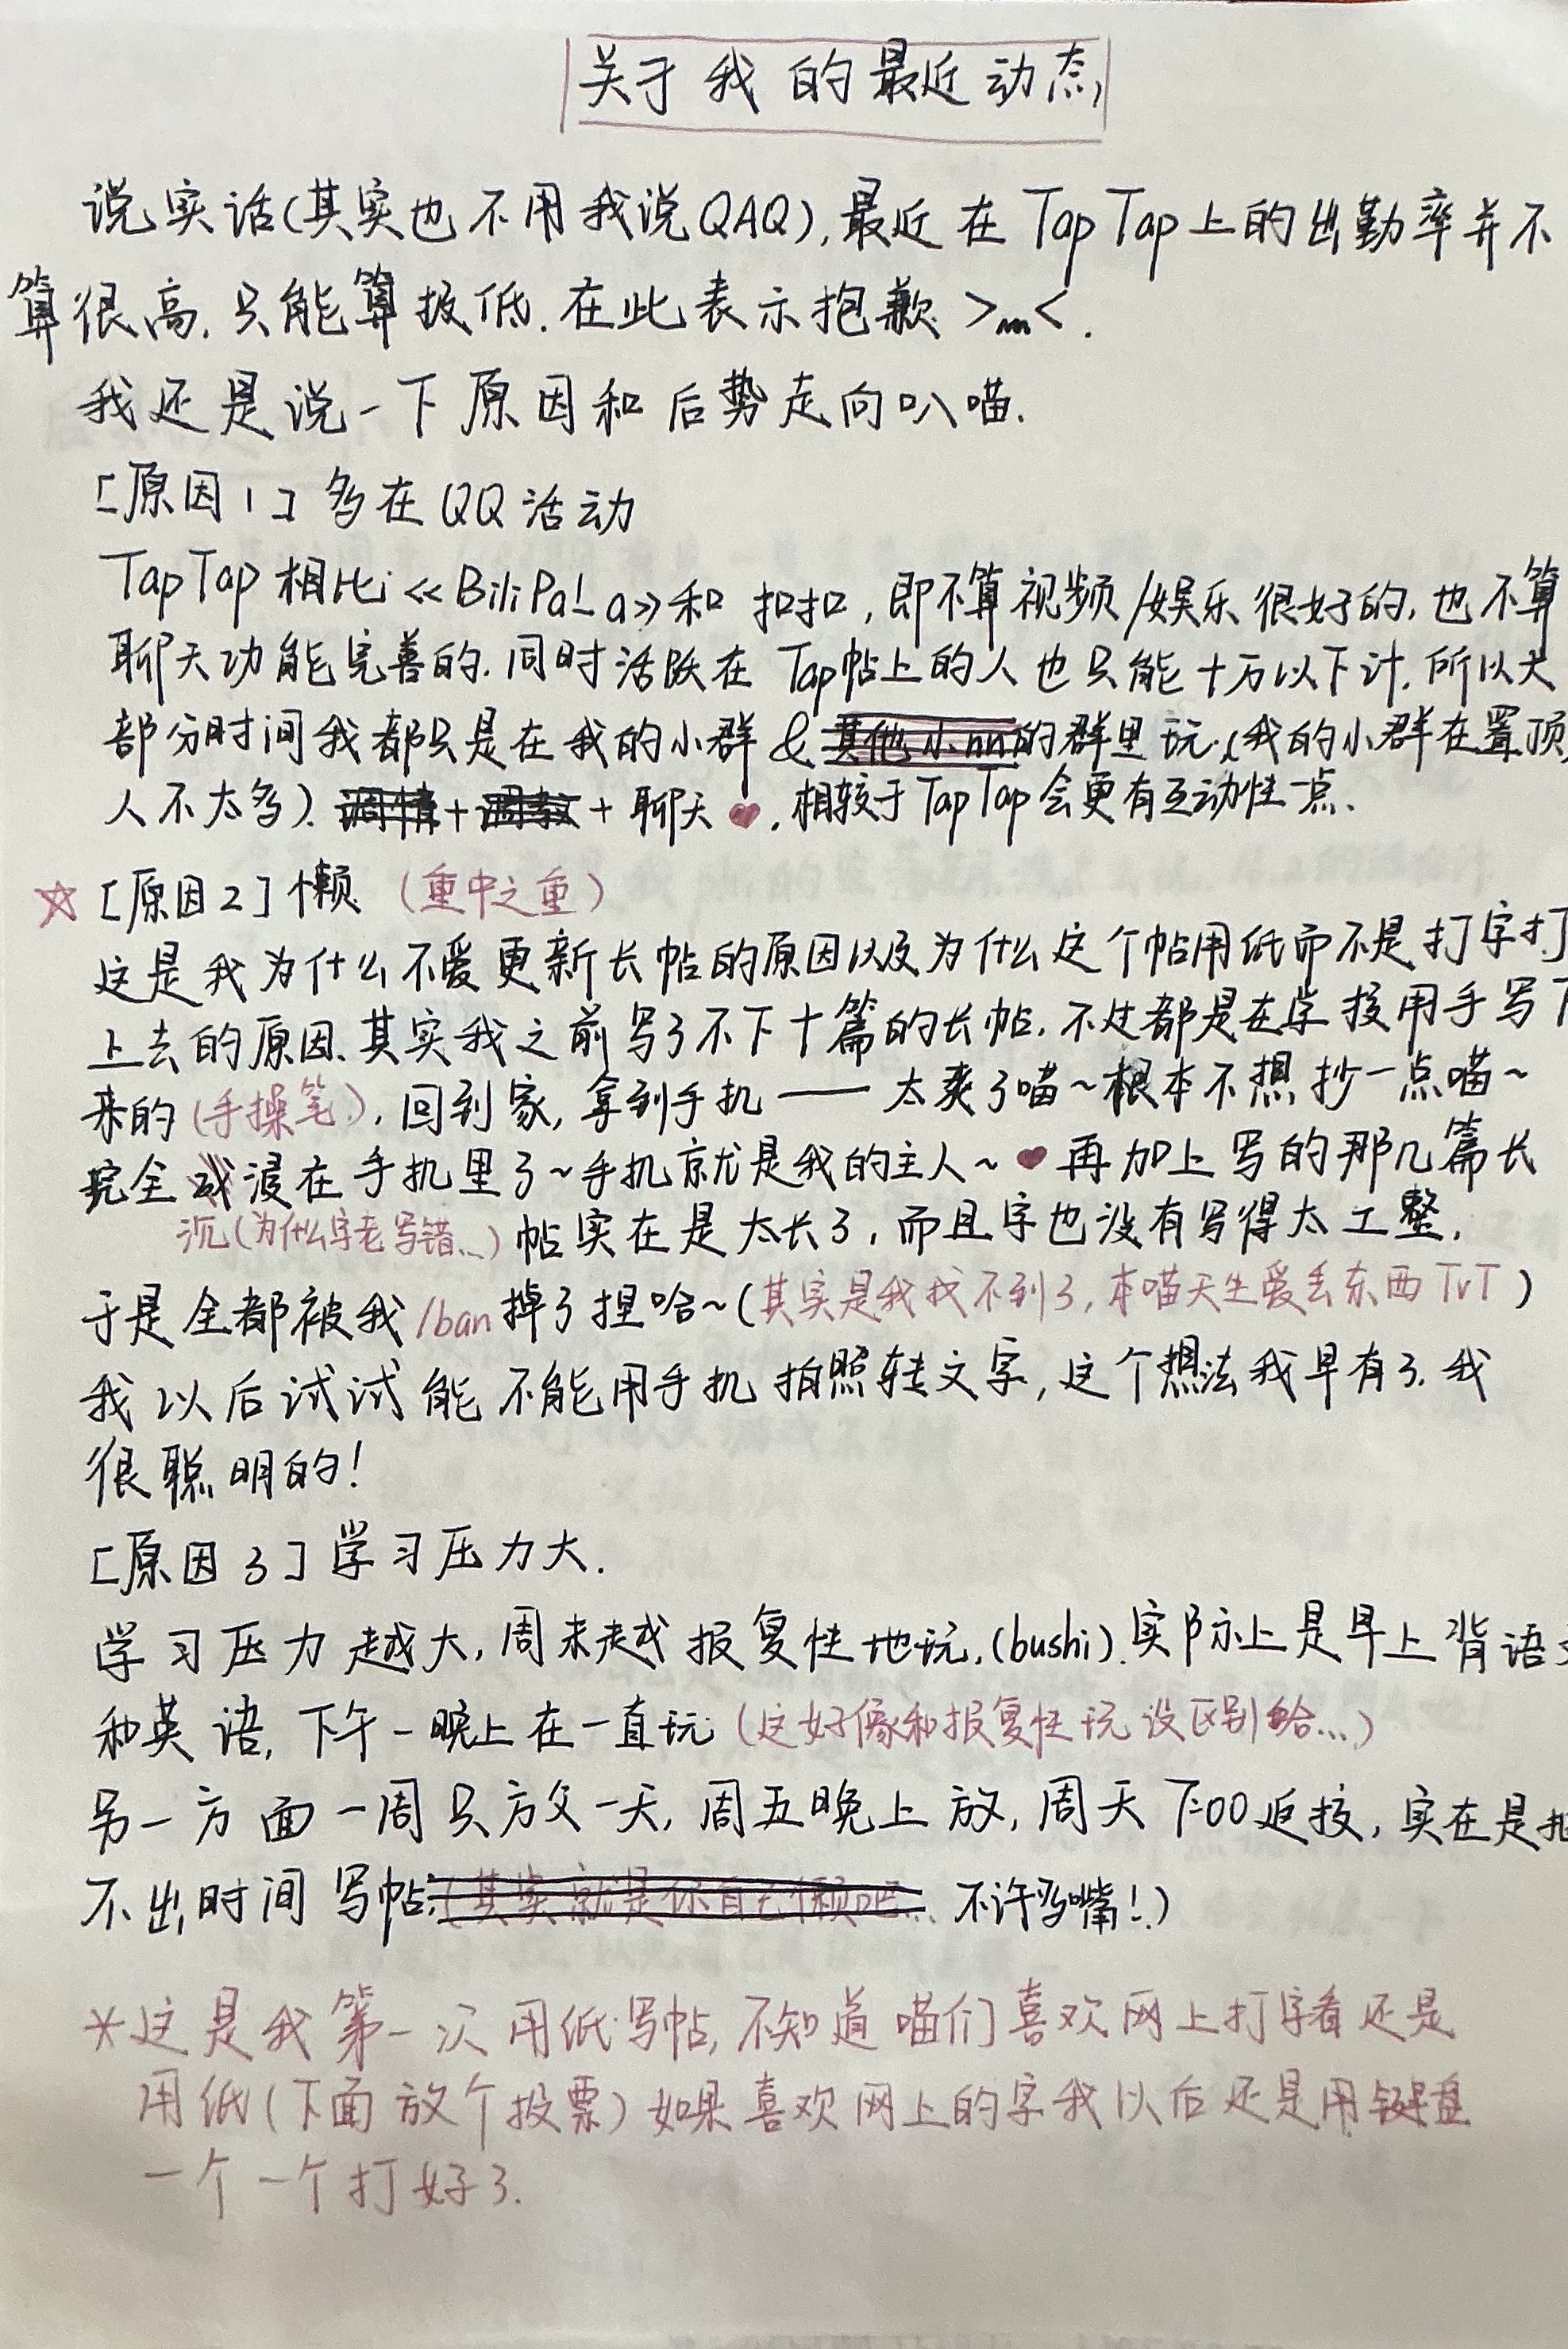 关于我的最近动态
说实话(其实也不用我说QAQ),最近在TapTap上的出勤率并不
算很高.只能算极低.在此表示抱歉>m<.
我还是说一下原因和后势走向叭喵.
[原因1]多在QQ活动
TapTap相比《BiliPaLa》和扣扣,即不算视频/娱乐很好的,也不算
聊天功能完善的.同时活跃在Tap帖上的人也只能十万以下计.所以大
部分时间我都只是在我的小群&其他小nn的群里玩.(我的小群在置顶,
人不太多).调情+调教+聊天♥.相较于TapTap会更有互动性一点.
☆[原因2]懒(重中之重)
这是我为什么不爱更新长帖的原因以及为什么这个帖用纸而不是打字打
上去的原因.其实我之前写了不下十篇的长帖.不过都是在学校用手写下
来的(手操笔),回到家,拿到手机——太爽了喵~根本不想抄一点喵~
完全浸在手机里了~手机就是我的主人~♥再加上写的那几篇长
沉(为什么字老写错...)帖实在是太长了,而且字也没有写得太工整,
于是全都被我/ban掉了捏哈~(其实是我找不到了,本喵天生爱丢东西TvT)
我以后试试能不能用手机拍照转文字,这个想法我早有了.我
很聪明的!
[原因3]学习压力大.
学习压力越大,周末越报复性地玩.(bushi).实际上是早上背语文
和英语,下午-晚上在一直玩(这好像和报复性玩没区别哈...)
另一方面一周只放一天,周五晚上放,周天下:00返校,实在是抽
不出时间写帖.(其实就是你自己懒吧...不许多嘴!)
*这是我第一次用纸写帖,不知道喵们喜欢网上打字看还是
用纸(下面放个投票)如果喜欢网上的字我以后还是用键盘
一个一个打好了.